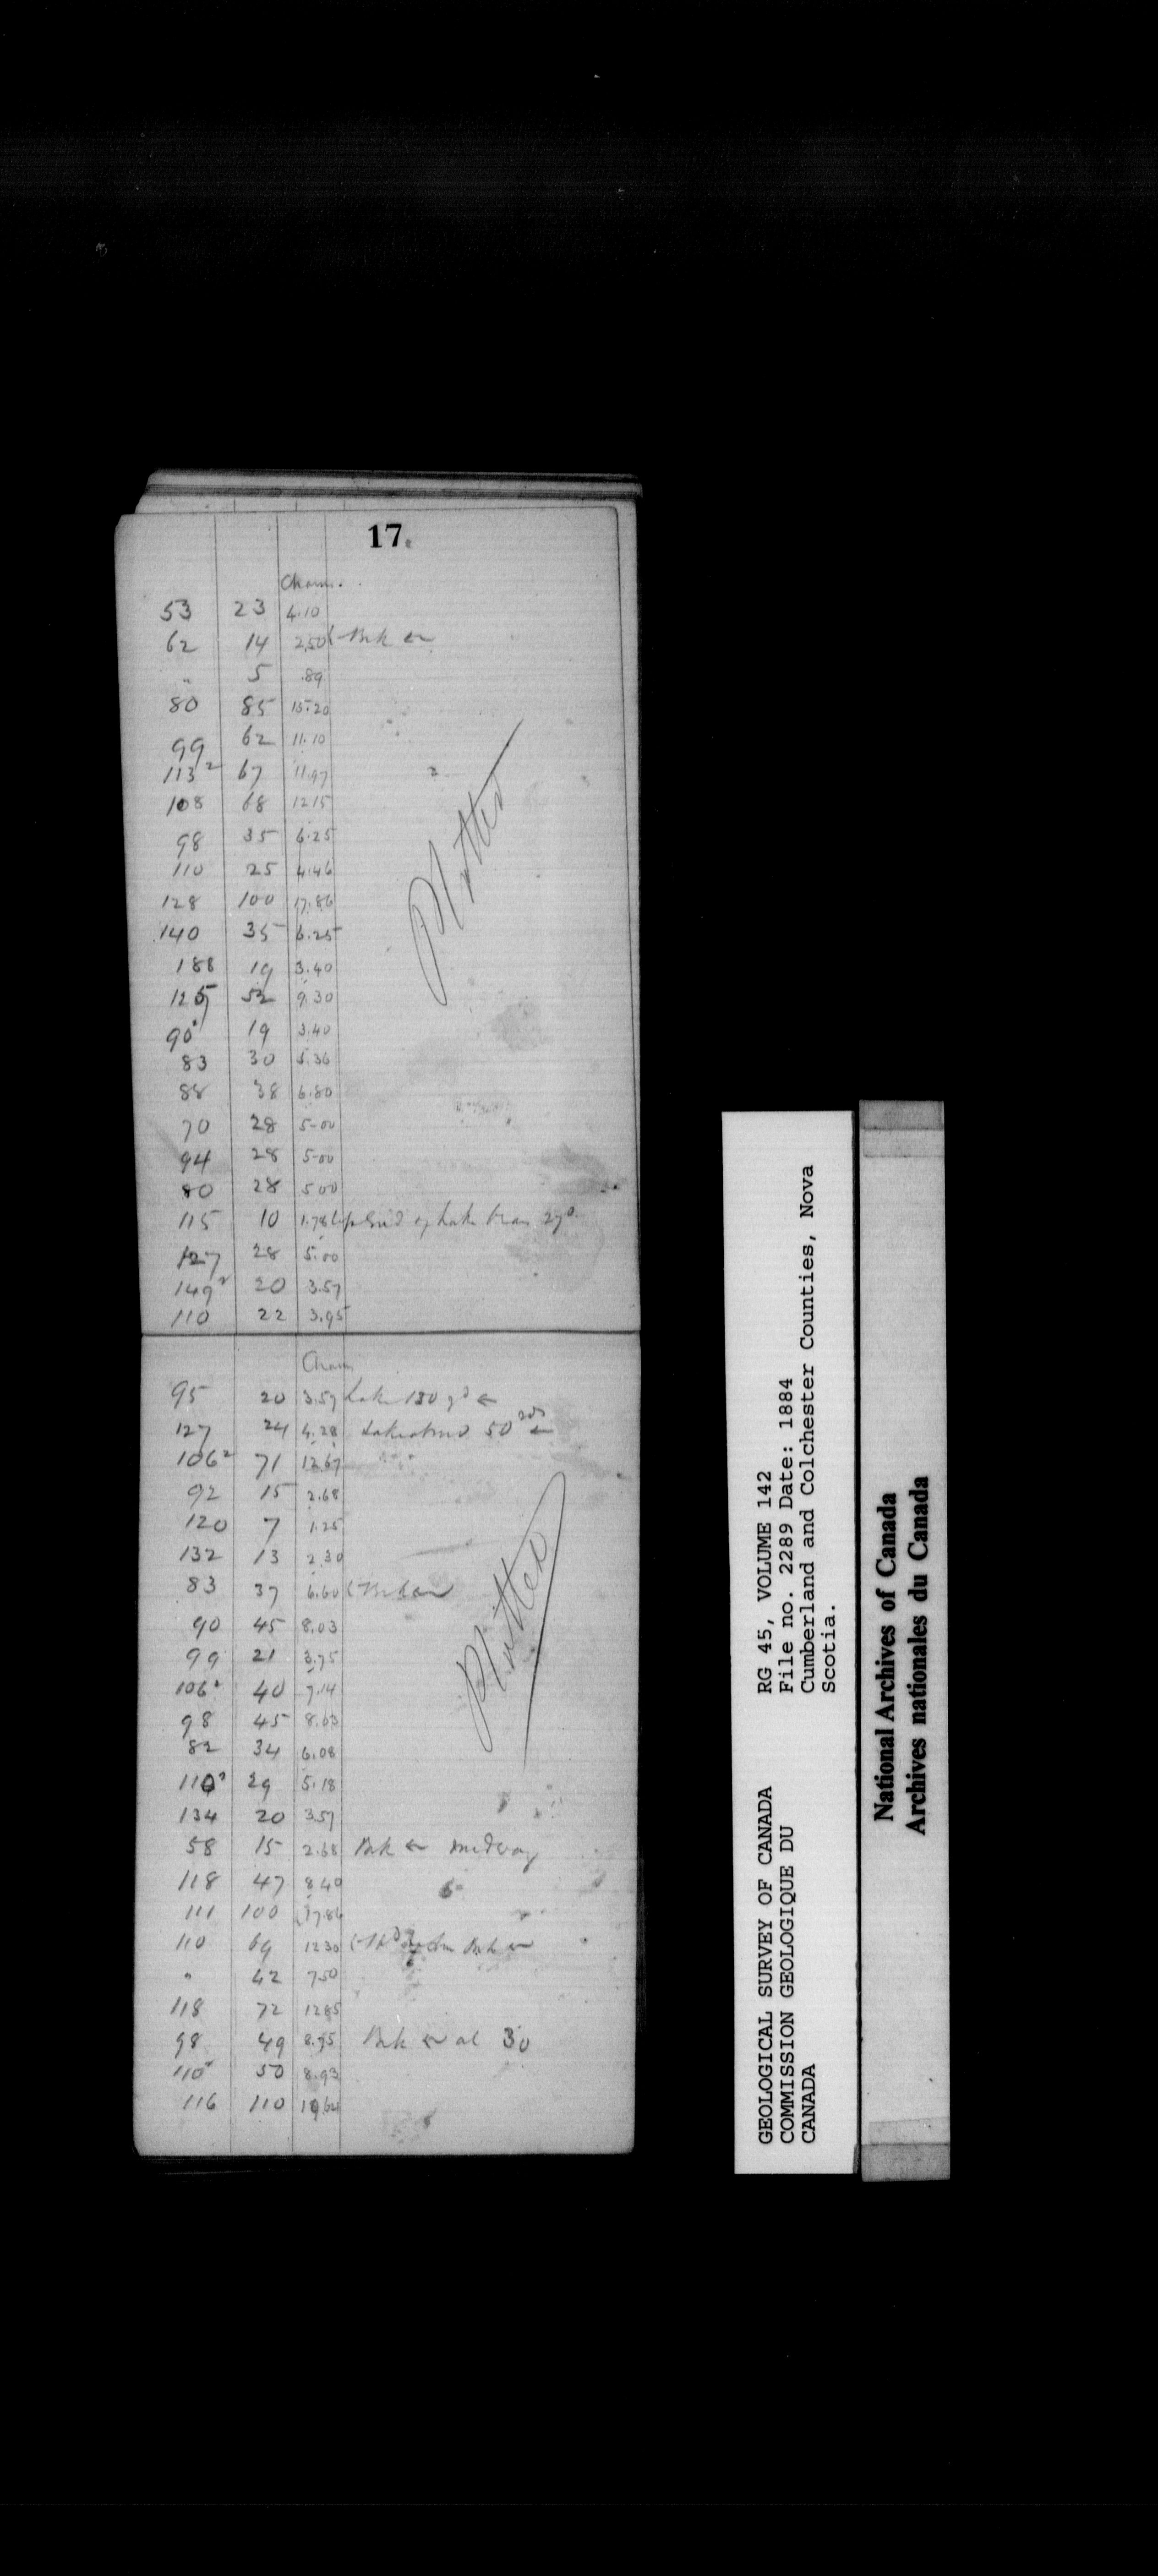 17.
Chains.
53 23 4.10
62 14 2.50 Brk ←
" 5 .89
80 85 15.20
99 62 11.10
113² 67 11.97
108 68 12.15
98 35 6.25
110 25 4.46
128 100 17.86
140 35 6.25
188 19 3.40
125 52 9.30
90 19 3.40
83 30 5.36
88 38 6.80
70 28 5.00
94 28 5.00
80 28 5.00
115 10 1.78 end of Lake 270
127 28 5.00
149² 20 3.57
110 22 3.95
Plotted
Chains
95 20 3.57 Lake 130 yds ←
127 24 4.28 Lake 50 yds ←
106² 71 12.67
92 15 2.68
120 7 1.25
132 13 2.30
83 37 6.60 Brk ←
90 45 8.03
99 21 3.75
106² 40 7.14
98 45 8.03
82 34 6.08
110² 29 5.18
134 20 3.57
58 15 2.68 Brk ← midway
118 47 8.40
111 100 17.86
110 69 12.30 Brk ←
" 42 7.50
118 72 12.85
98 49 8.75 Brk ← at 30
110 50 8.93
116 110 19.64
Plotted
GEOLOGICAL SURVEY OF CANADA
COMMISSION GEOLOGIQUE DU
CANADA
RG 45, VOLUME 142
File no. 2289 Date: 1884
Cumberland and Colchester Counties, Nova
Scotia.
National Archives of Canada
Archives nationales du Canada